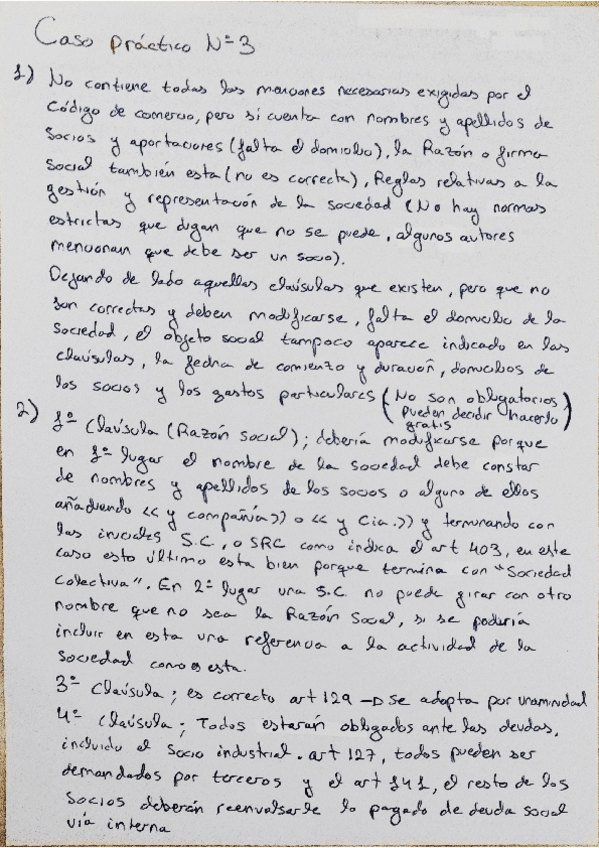 Caso práctico Nº3
1) No contiene todas las menciones necesarias exigidas por el
Código de comercio, pero si cuenta con nombres y apellidos de
Socios y aportaciones (falta el domicilio), la Razón o firma
social también esta (no es correcta), Reglas relativas a la
gestión y representación de la sociedad (No hay normas
estrictas que digan que no se puede, algunos autores
mencionan que debe ser un socio).
Dejando de lado aquellas claúsulas que existen, pero que no
son correctas y deben modificarse, falta el domicilio de la
Sociedad, el objeto social tampoco aparece indicado en las
claúsulas, la fecha de comienzo y duración, domicilios de
los socios y los gastos particulares (No son obligatorios
pueden decidir hacerlo
gratis)
2) 1º Claúsula (Razón social); debería modificarse porque
en 1º lugar el nombre de la sociedad debe constar
de nombres y apellidos de los socios o alguno de ellos
añadiendo << y compañía>> o << y Cia.>> y terminando con
las iniciales S.C, o SRC como indica el art 403, en este
caso esto último esta bien porque termina con "Sociedad
Colectiva". En 2º lugar una S.C. no puede girar con otro
nombre que no sea la Razón Social, si se podría
incluir en esta una referencia a la actividad de la
Sociedad como es esta.
3º Claúsula; es correcto art 129 → Se adopta por unanimidad
4º Claúsula; Todos estarán obligados ante las deudas,
incluido el Socio industrial. art 127, todos pueden ser
demandados por terceros y el art 141, el resto de los
Socios deberán reenvolsarle lo pagado de deuda social
vía interna